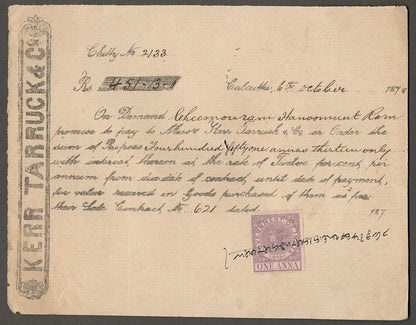 KERR TARRUCK & Co
Chitty No 2133
Rs 451-13-
Calcutta, 6th October 187
On Demand Cheemonram Hanoomut Ram
promise to pay to Mess Kerr Tarruck & Co or Order the
sum of Rupees Four hundred fifty one annas thirteen only
with interest thereon at the rate of Twelve per cent per
annum from due date of contract, until date of payment,
for value received in Goods purchased of them as per
their Sale Contract No. 621 dated 187
ONE ANNA